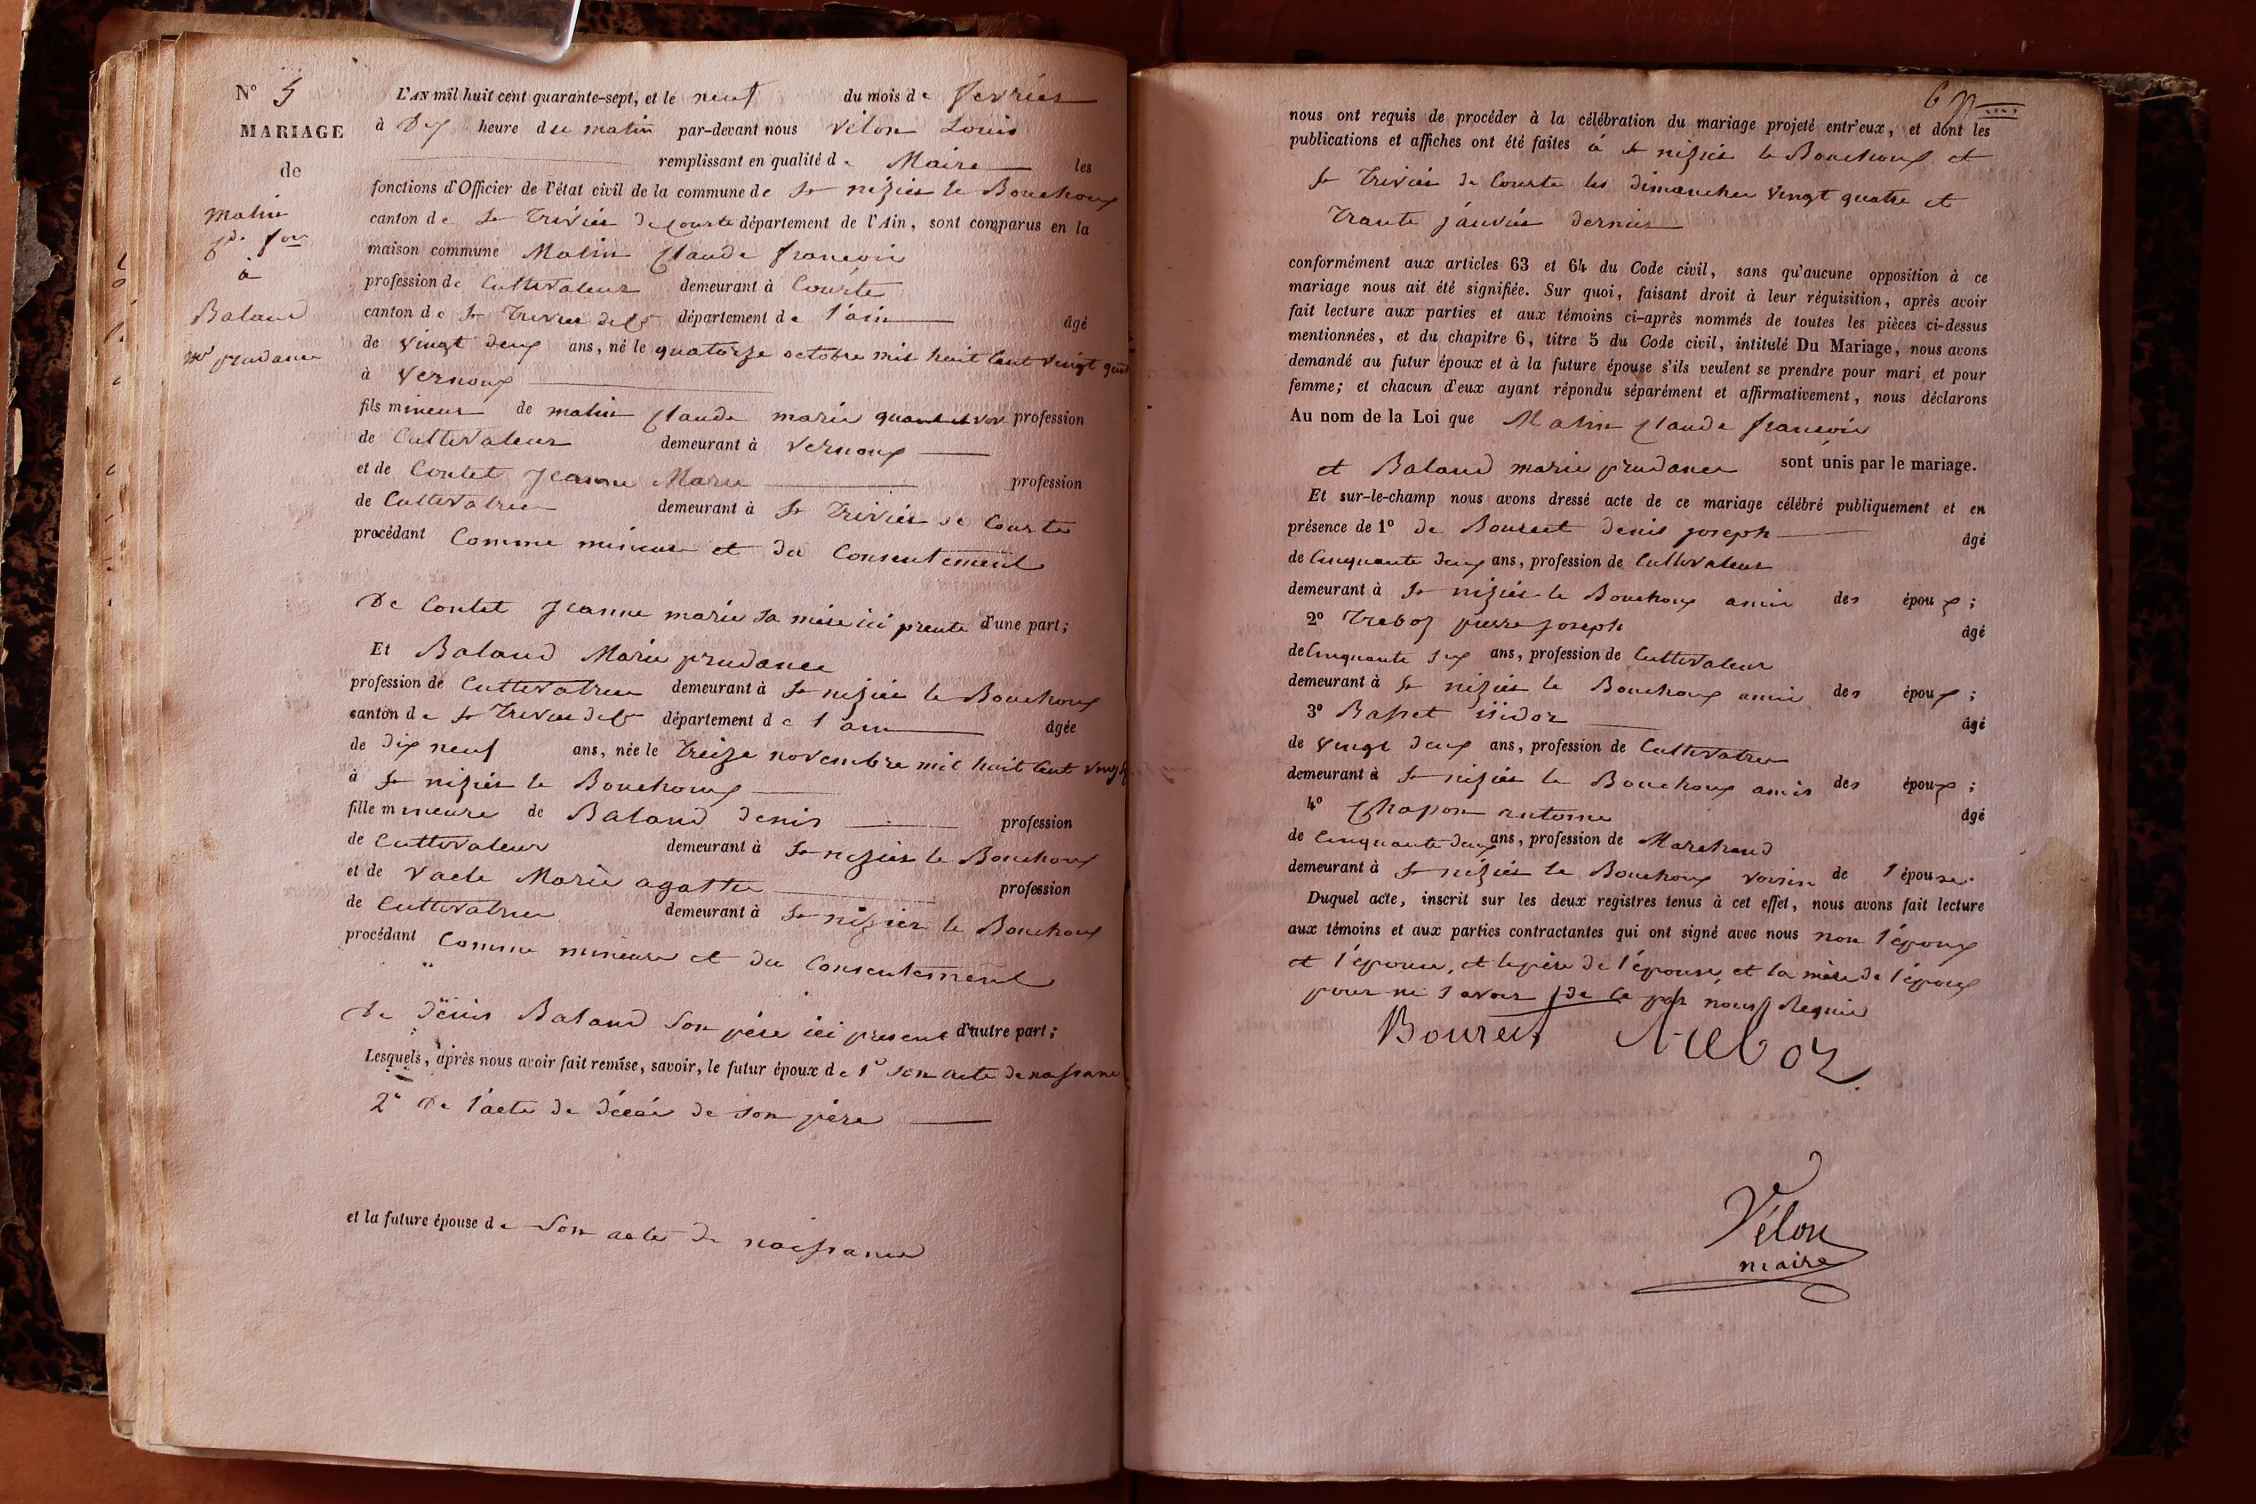 N° 5
MARIAGE
de
Matin
Cde fois
à
Baland
Mie prudance
L'AN mil huit cent quarante-sept, et le neuf du mois de fevrier
à Dix heure du matin par-devant nous Vélon Louis
remplissant en qualité de Maire les
fonctions d'Officier de l'état civil de la commune de St nizier le Bouchoux
canton de St Trivier de Courte département de l'Ain, sont comparus en la
maison commune Matin Claude francois
profession de Cultivateur demeurant à Courte
canton de St Trivier de Cs département de l'ain âgé
de vingt deux ans, né le quatorze octobre mil huit Cent vingt quatre
à Vernoux
fils mineur de matin Claude marie quand il vivoit profession
de Cultivateur demeurant à Vernoux
et de Contet Jeanne Marie profession
de Cultivatrice demeurant à St Trivier de Courte
procédant Comme mineur et du Consentement
De Contet Jeanne marie sa mère ici presente d'une part;
Et Baland Marie prudance
profession de Cultivatrice demeurant à St nizier le Bouchoux
canton de St Trivier de Cs département de l'ain âgée
de dix neuf ans, née le Treize novembre mil huit Cent vingt
à St nizier le Bouchoux
fille mineure de Baland denis profession
de Cultivateur demeurant à St nizier le Bouchoux
et de Vacle Marie agathe profession
de Cultivatrice demeurant à St nizier le Bouchoux
procédant Comme mineure et du Consentement
De denis Baland son père ici present d'autre part;
Lesquels, après nous avoir fait remise, savoir, le futur époux de 1° son acte de naissance
2° De l'acte de décés de son père
et la future épouse de son acte de naissance
6
nous ont requis de procéder à la célébration du mariage projeté entr'eux, et dont les
publications et affiches ont été faites à St nizier le Bouchoux et
St Trivier de Courte les dimanches vingt quatre et
Trante janvier dernier
conformément aux articles 63 et 64 du Code civil, sans qu'aucune opposition à ce
mariage nous ait été signifiée. Sur quoi, faisant droit à leur réquisition, après avoir
fait lecture aux parties et aux témoins ci-après nommés de toutes les pièces ci-dessus
mentionnées, et du chapitre 6, titre 5 du Code civil, intitulé Du Mariage, nous avons
demandé au futur époux et à la future épouse s'ils veulent se prendre pour mari et pour
femme; et chacun d'eux ayant répondu séparément et affirmativement, nous déclarons
Au nom de la Loi que Matin Claude francois
et Baland marie prudance sont unis par le mariage.
Et sur-le-champ nous avons dressé acte de ce mariage célébré publiquement et en
présence de 1° de Bourcet denis joseph âgé
de Cinquante deux ans, profession de Cultivateur
demeurant à St nizier le Bouchoux amis des époux;
2° Treboz pierre joseph âgé
de Cinquante six ans, profession de Cultivateur
demeurant à St nizier le Bouchoux amis des époux;
3° Basset isidor âgé
de vingt deux ans, profession de Cultivatree
demeurant à St nizier le Bouchoux amis des époux;
4° Chapon antoine âgé
de Cinquante deux ans, profession de Marchand
demeurant à St nizier le Bouchoux voisin de l'épouse.
Duquel acte, inscrit sur les deux registres tenus à cet effet, nous avons fait lecture
aux témoins et aux parties contractantes qui ont signé avec nous non l'époux
et l'épouse, et le père de l'épouse et la mère de l'époux
pour ne savoir de ce par nous Requis
Bourcet Treboz
Vélon
maire